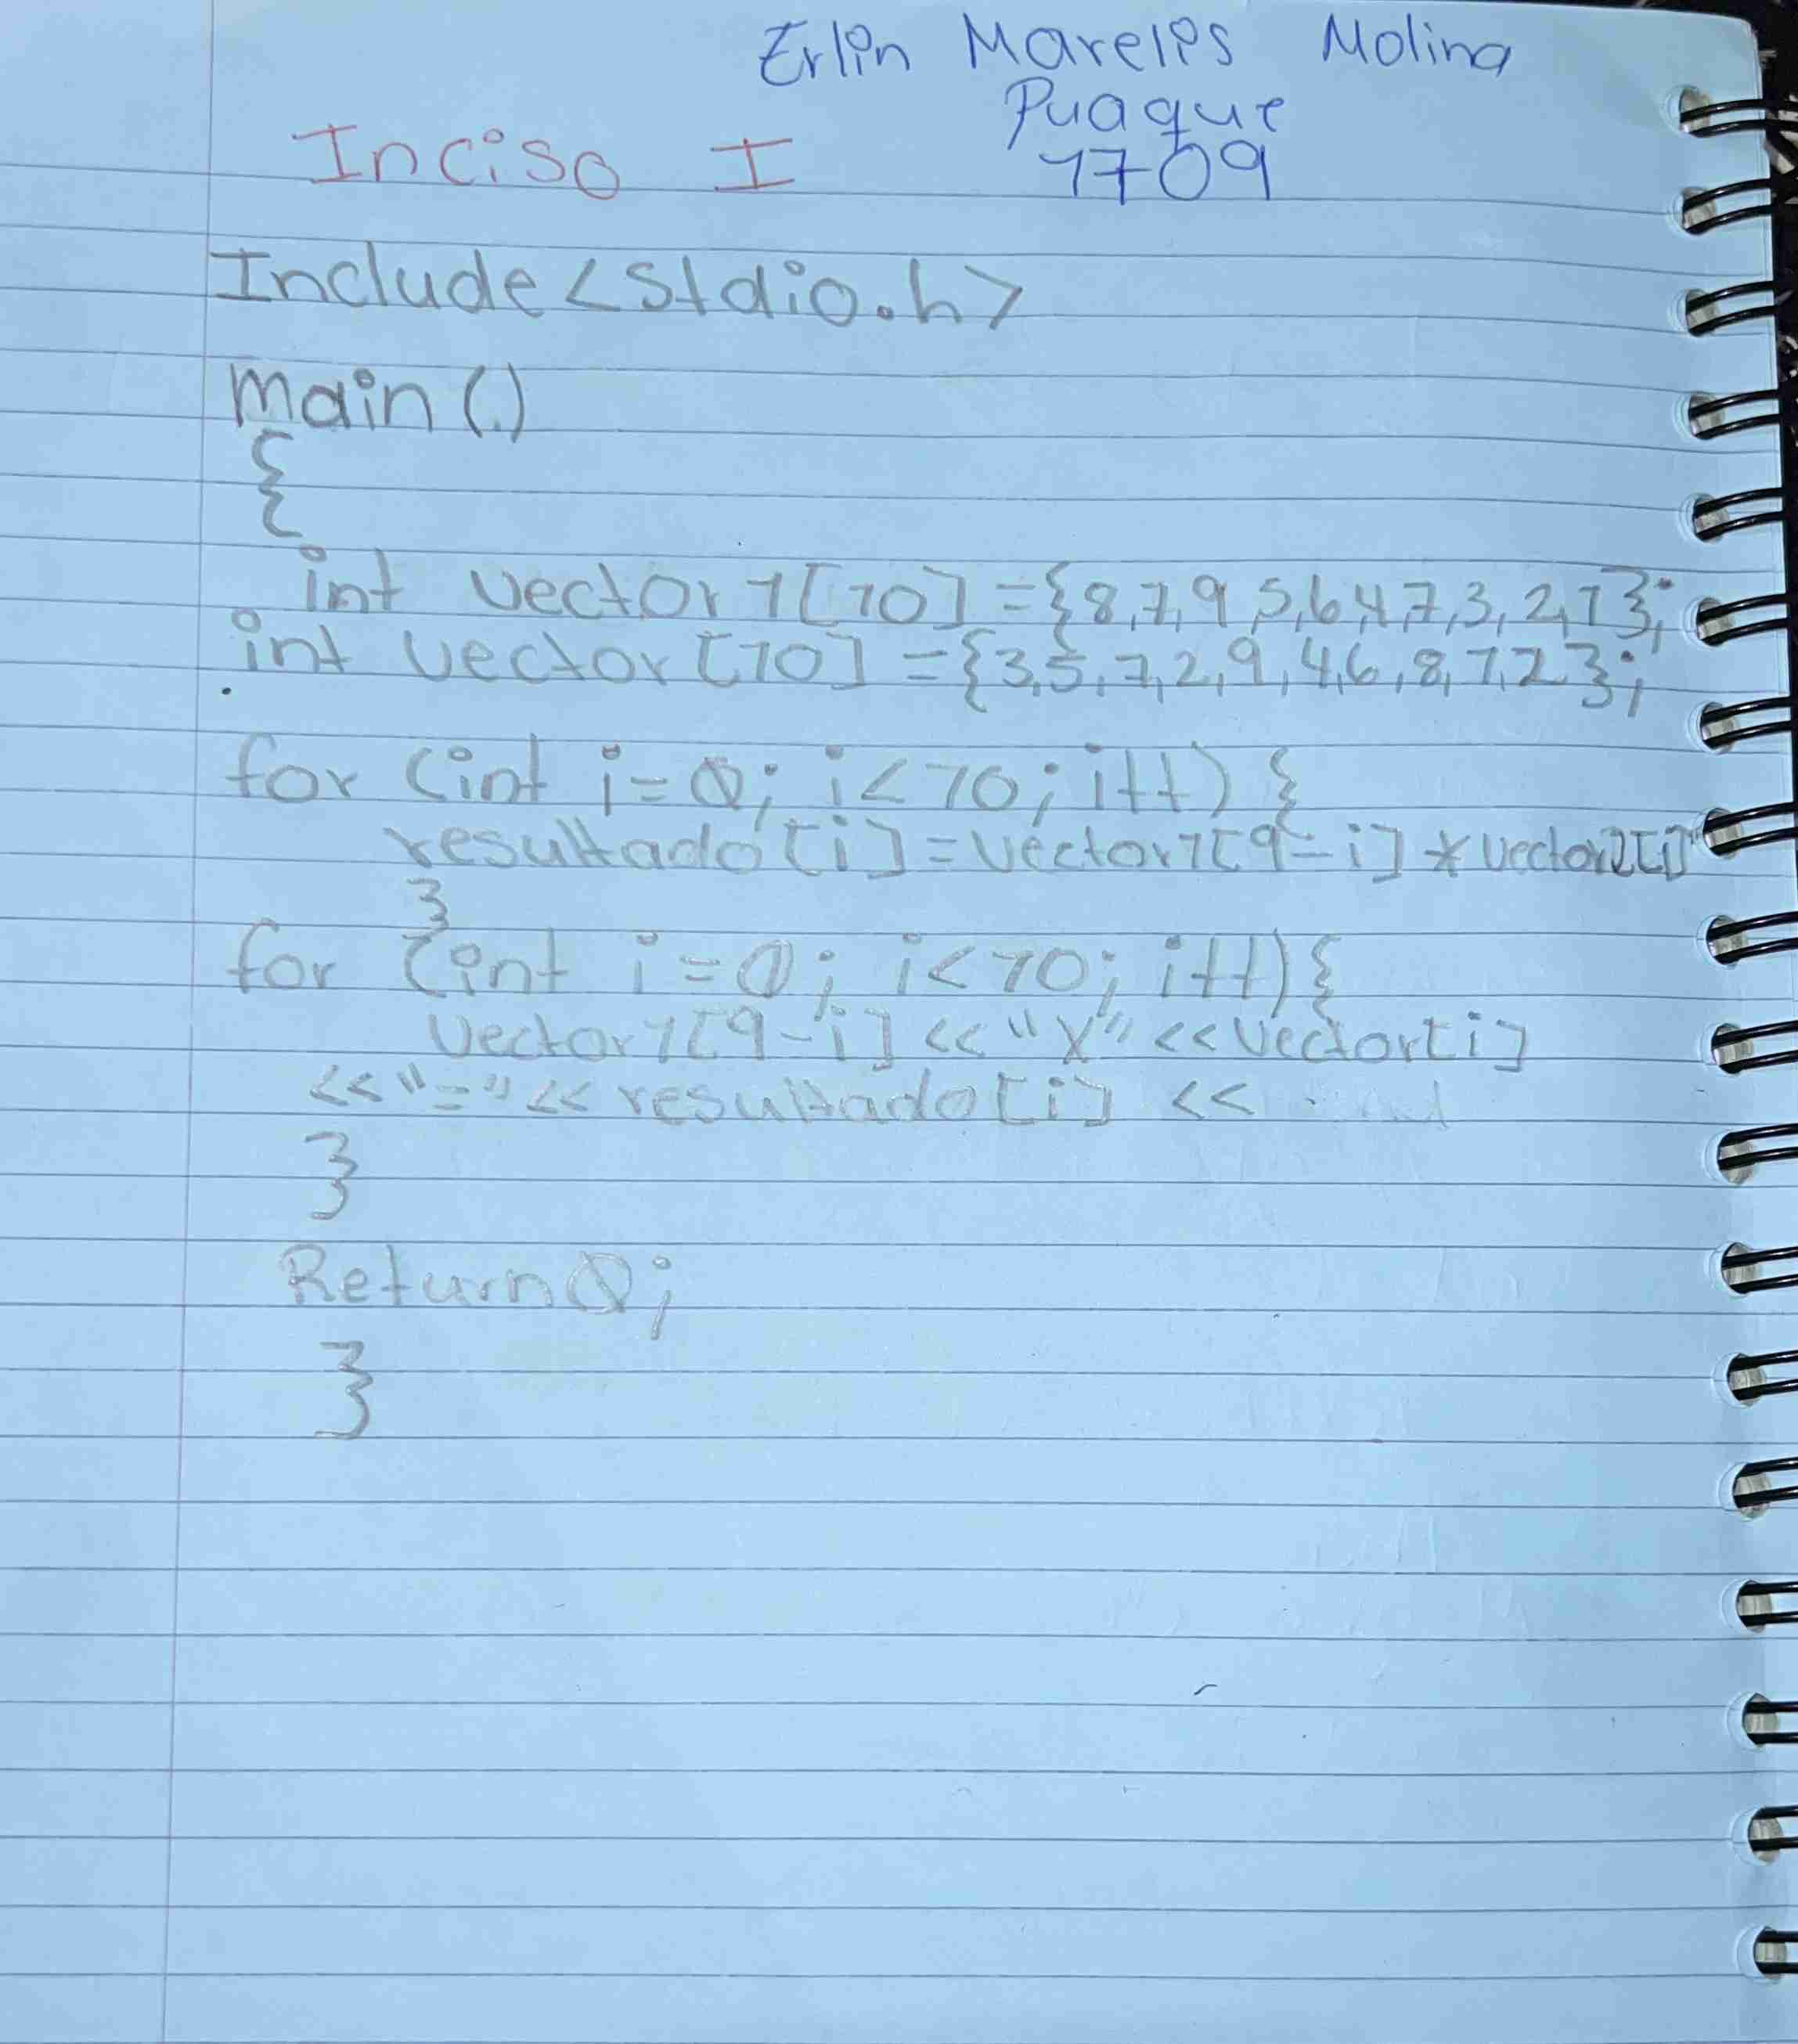 Erlin Marelis Molina
Puaque
1709
Inciso I
Include<stdio.h>
main()
{
int vector1[10]={8,7,9,5,6,4,7,3,2,1};
int vector[10]={3,5,7,2,9,4,6,8,1,2};
for (int i=0; i<10; i++){
resultado[i]=vector1[9-i]*vector2[i]
}
for (int i=0; i<10; i++){
vector1[9-i]<<"x"<<vector[i]
<<"="<<resultado[i] <<
}
Return0;
}